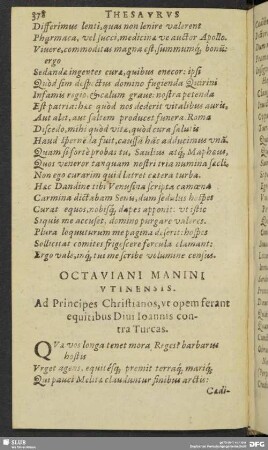 378 THESAVRVS
Differimus lenti, quasi non lenire valerent
Pharmaca, vel succi, medicina ve auctor Apollo.
Viuere, commoditas magna est, summumq, bonū:
ergo
Sedandæ ingentes curæ, quibus enecor: ipsi
Quòd sim despectus domino fugienda Quirini
Infamis regio. & cælum graue: nostra petenda
Est patria: hæc quòd nos dederit vitalibus auris,
Aut alat, aut saltem producet funera. Roma
Discedo, mihi quòd vitæ, quòd cura salutis
Haud sperne da fuit, caussa hæc adducimus vnā.
Quàm si fortè probas tu, Sauctius atq, Maphæus,
Quos venerer tanquam nostri tria numina sæcli,
Non ego curarim quid latret cætera turba.
Hæc Dandine tibi Venusina scripta camœna
Carmina dictabam Senis, dum sedulus hospes
Curat equos, nobisq, dapes apponit. vt istic
Si quis me accusit, domino purgare valeres.
Plura loquuturum me pagina deserit: hospes
Sollicitat comites frigescere fercula clamant:
Ergo vale, inq, tuis me scribe volumine census.
OCTAVIANI MANINI
VTINENSIS.
Ad Principes Christianos, vt opem ferant
equitibus Diui Ioannis con-
tra Turcas.
QVa vos longa tenet mora, Reges? barbarus
hostis
Vrget agens, equitésq, premit terraq, mariq,
Qui pauci Melita clauduntur finibus arctis:
Cædi-
SLUB